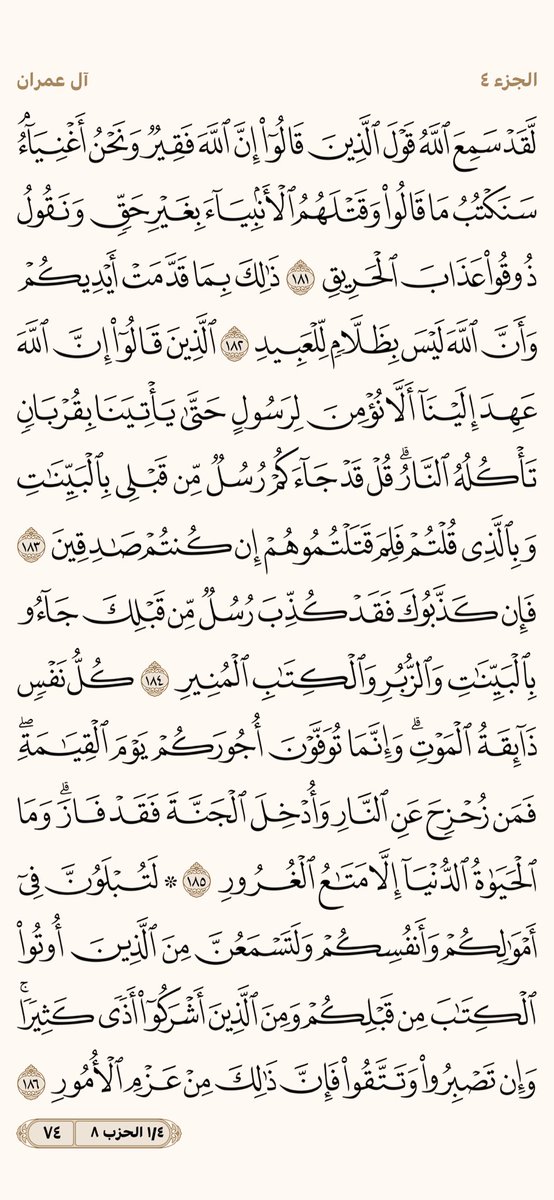 الجزء ٤
آل عمران
لَّقَدْ سَمِعَ ٱللَّهُ قَوْلَ ٱلَّذِينَ قَالُوٓا۟ إِنَّ ٱللَّهَ فَقِيرٌ وَنَحْنُ أَغْنِيَآءُ ۘ
سَنَكْتُبُ مَا قَالُوا۟ وَقَتْلَهُمُ ٱلْأَنۢبِيَآءَ بِغَيْرِ حَقٍّ وَنَقُولُ
ذُوقُوا۟ عَذَابَ ٱلْحَرِيقِ ١٨١ ذَٰلِكَ بِمَا قَدَّمَتْ أَيْدِيكُمْ
وَأَنَّ ٱللَّهَ لَيْسَ بِظَلَّامٍ لِّلْعَبِيدِ ١٨٢ ٱلَّذِينَ قَالُوٓا۟ إِنَّ ٱللَّهَ
عَهِدَ إِلَيْنَآ أَلَّا نُؤْمِنَ لِرَسُولٍ حَتَّىٰ يَأْتِيَنَا بِقُرْبَانٍ
تَأْكُلُهُ ٱلنَّارُ ۗ قُلْ قَدْ جَآءَكُمْ رُسُلٌ مِّن قَبْلِى بِٱلْبَيِّنَٰتِ
وَبِٱلَّذِى قُلْتُمْ فَلِمَ قَتَلْتُمُوهُمْ إِن كُنتُمْ صَٰدِقِينَ ١٨٣
فَإِن كَذَّبُوكَ فَقَدْ كُذِّبَ رُسُلٌ مِّن قَبْلِكَ جَآءُو
بِٱلْبَيِّنَٰتِ وَٱلزُّبُرِ وَٱلْكِتَٰبِ ٱلْمُنِيرِ ١٨٤ كُلُّ نَفْسٍ
ذَآئِقَةُ ٱلْمَوْتِ ۗ وَإِنَّمَا تُوَفَّوْنَ أُجُورَكُمْ يَوْمَ ٱلْقِيَٰمَةِ ۖ
فَمَن زُحْزِحَ عَنِ ٱلنَّارِ وَأُدْخِلَ ٱلْجَنَّةَ فَقَدْ فَازَ ۗ وَمَا
ٱلْحَيَوٰةُ ٱلدُّنْيَآ إِلَّا مَتَٰعُ ٱلْغُرُورِ ١٨٥ ۞ لَتُبْلَوُنَّ فِىٓ
أَمْوَٰلِكُمْ وَأَنفُسِكُمْ وَلَتَسْمَعُنَّ مِنَ ٱلَّذِينَ أُوتُوا۟
ٱلْكِتَٰبَ مِن قَبْلِكُمْ وَمِنَ ٱلَّذِينَ أَشْرَكُوٓا۟ أَذًى كَثِيرًا ۚ
وَإِن تَصْبِرُوا۟ وَتَتَّقُوا۟ فَإِنَّ ذَٰلِكَ مِنْ عَزْمِ ٱلْأُمُورِ ١٨٦
١/٤ الحزب ٨
٧٤